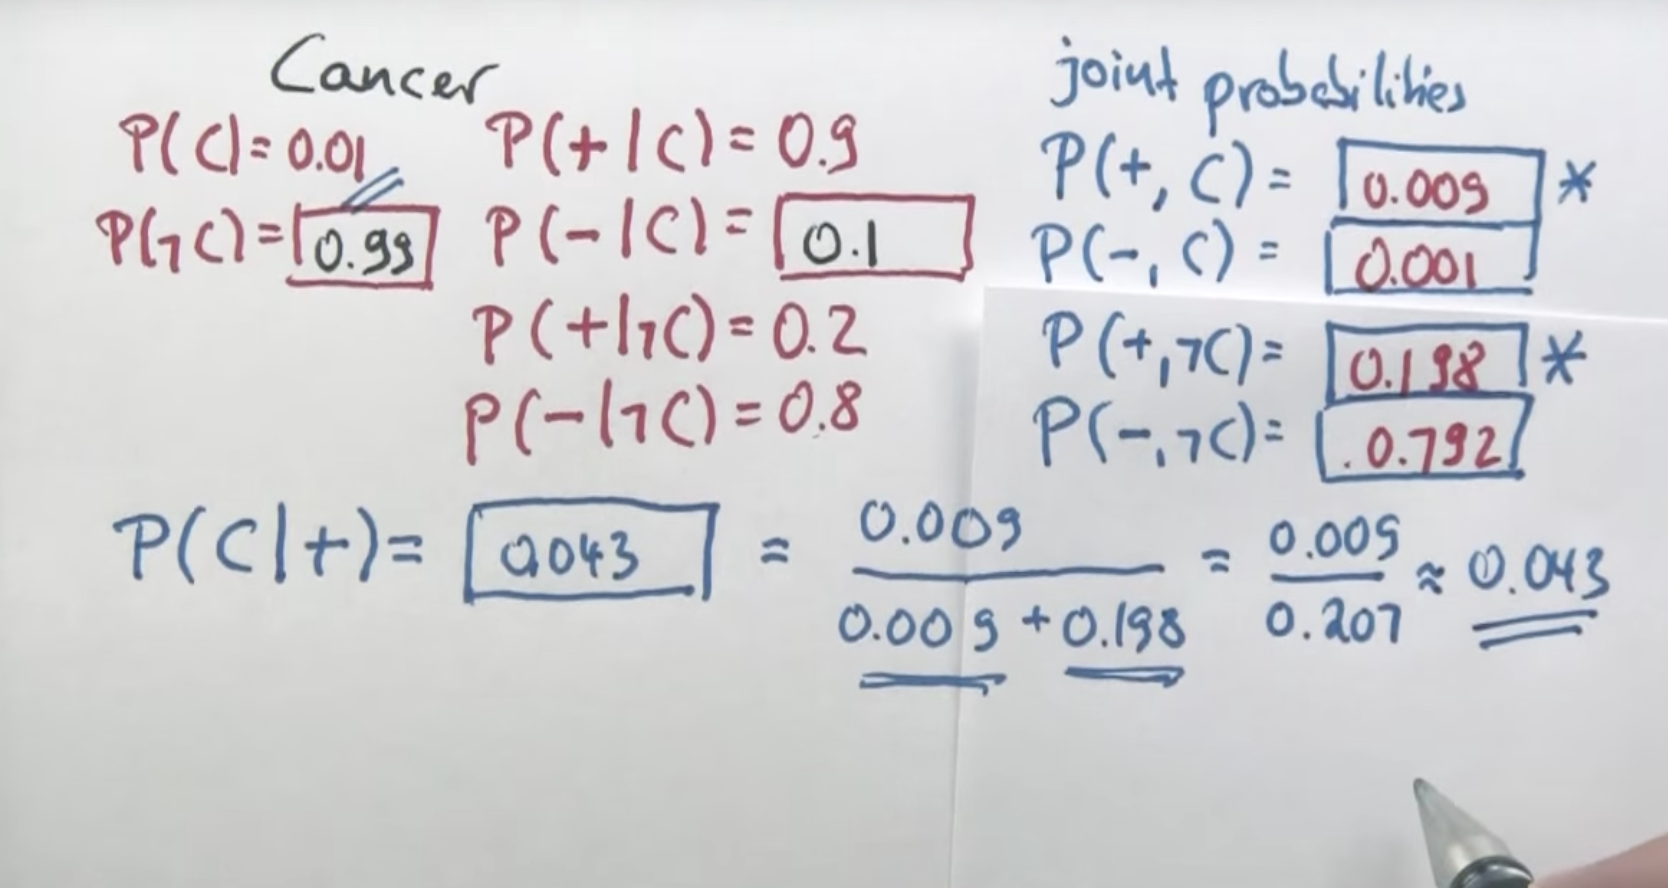 Cancer
P(C)= 0.01 P(+|C) = 0.9
P(¬C)= 0.99 P(-|C) = 0.1
P(+|¬C) = 0.2
P(-|¬C) = 0.8
joint probabilities
P(+, C) = 0.009 *
P(-, C) = 0.001
P(+,¬C)= 0.198 *
P(-,¬C)= 0.792
P(C|+)= 0.043 = 0.009 / 0.009 + 0.198 = 0.009 / 0.207 ≈ 0.043